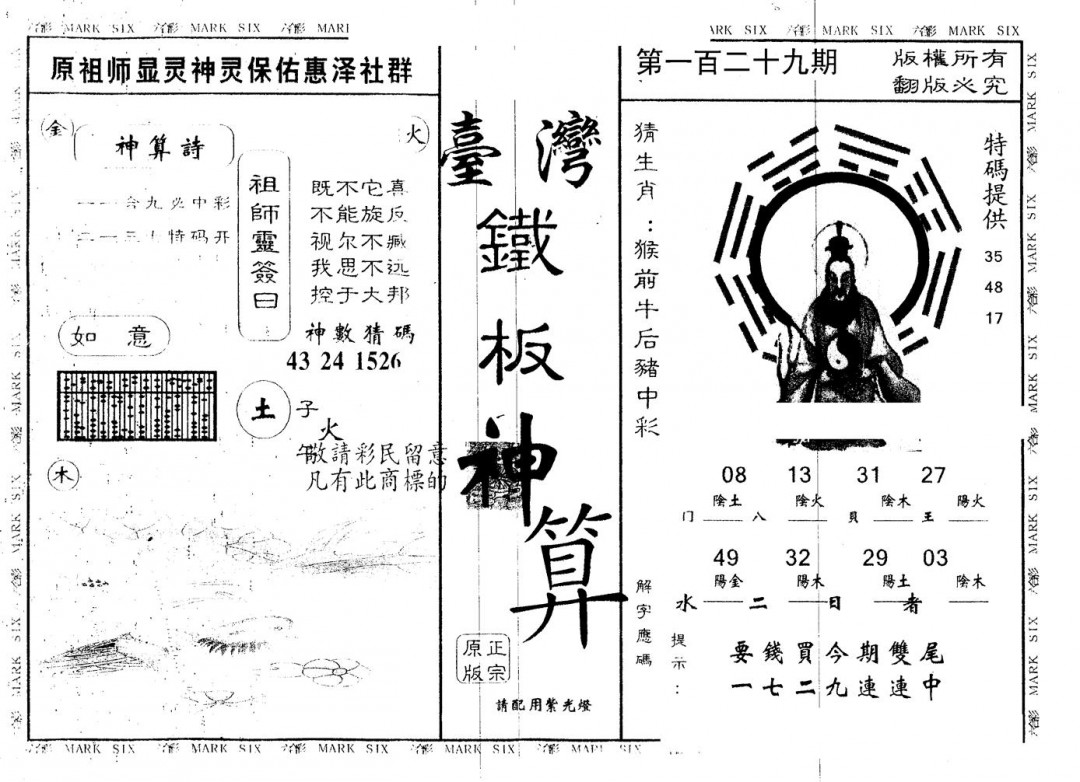 MARK SIX MARK SIX MARK SIX MARK SIX MARK SIX
原祖师显灵神灵保佑惠泽社群
金
神算詩
火
一一合九必中彩
二一三七特码开
祖師靈簽曰
既不它真
不能旋反
视尔不臧
我思不远
控于大邦
神數猜碼
43 24 1526
如意
土
子
火
午
敬請彩民留意
凡有此商標的
木
臺灣
鐵
板
神
算
原正
版宗
請配用紫光燈
第一百二十九期
版權所有
翻版必究
猜生肖：猴前牛后豬中彩
特碼提供
35
48
17
08 13 31 27
陰土 陰火 陰木 陽火
门 八 貝 王
49 32 29 03
陽金 陽木 陽土 陰木
水 二 日 者
解字應碼
提示：
要錢買今期雙尾
一七二九連連中
MARK SIX MARK SIX MARK SIX MARK SIX